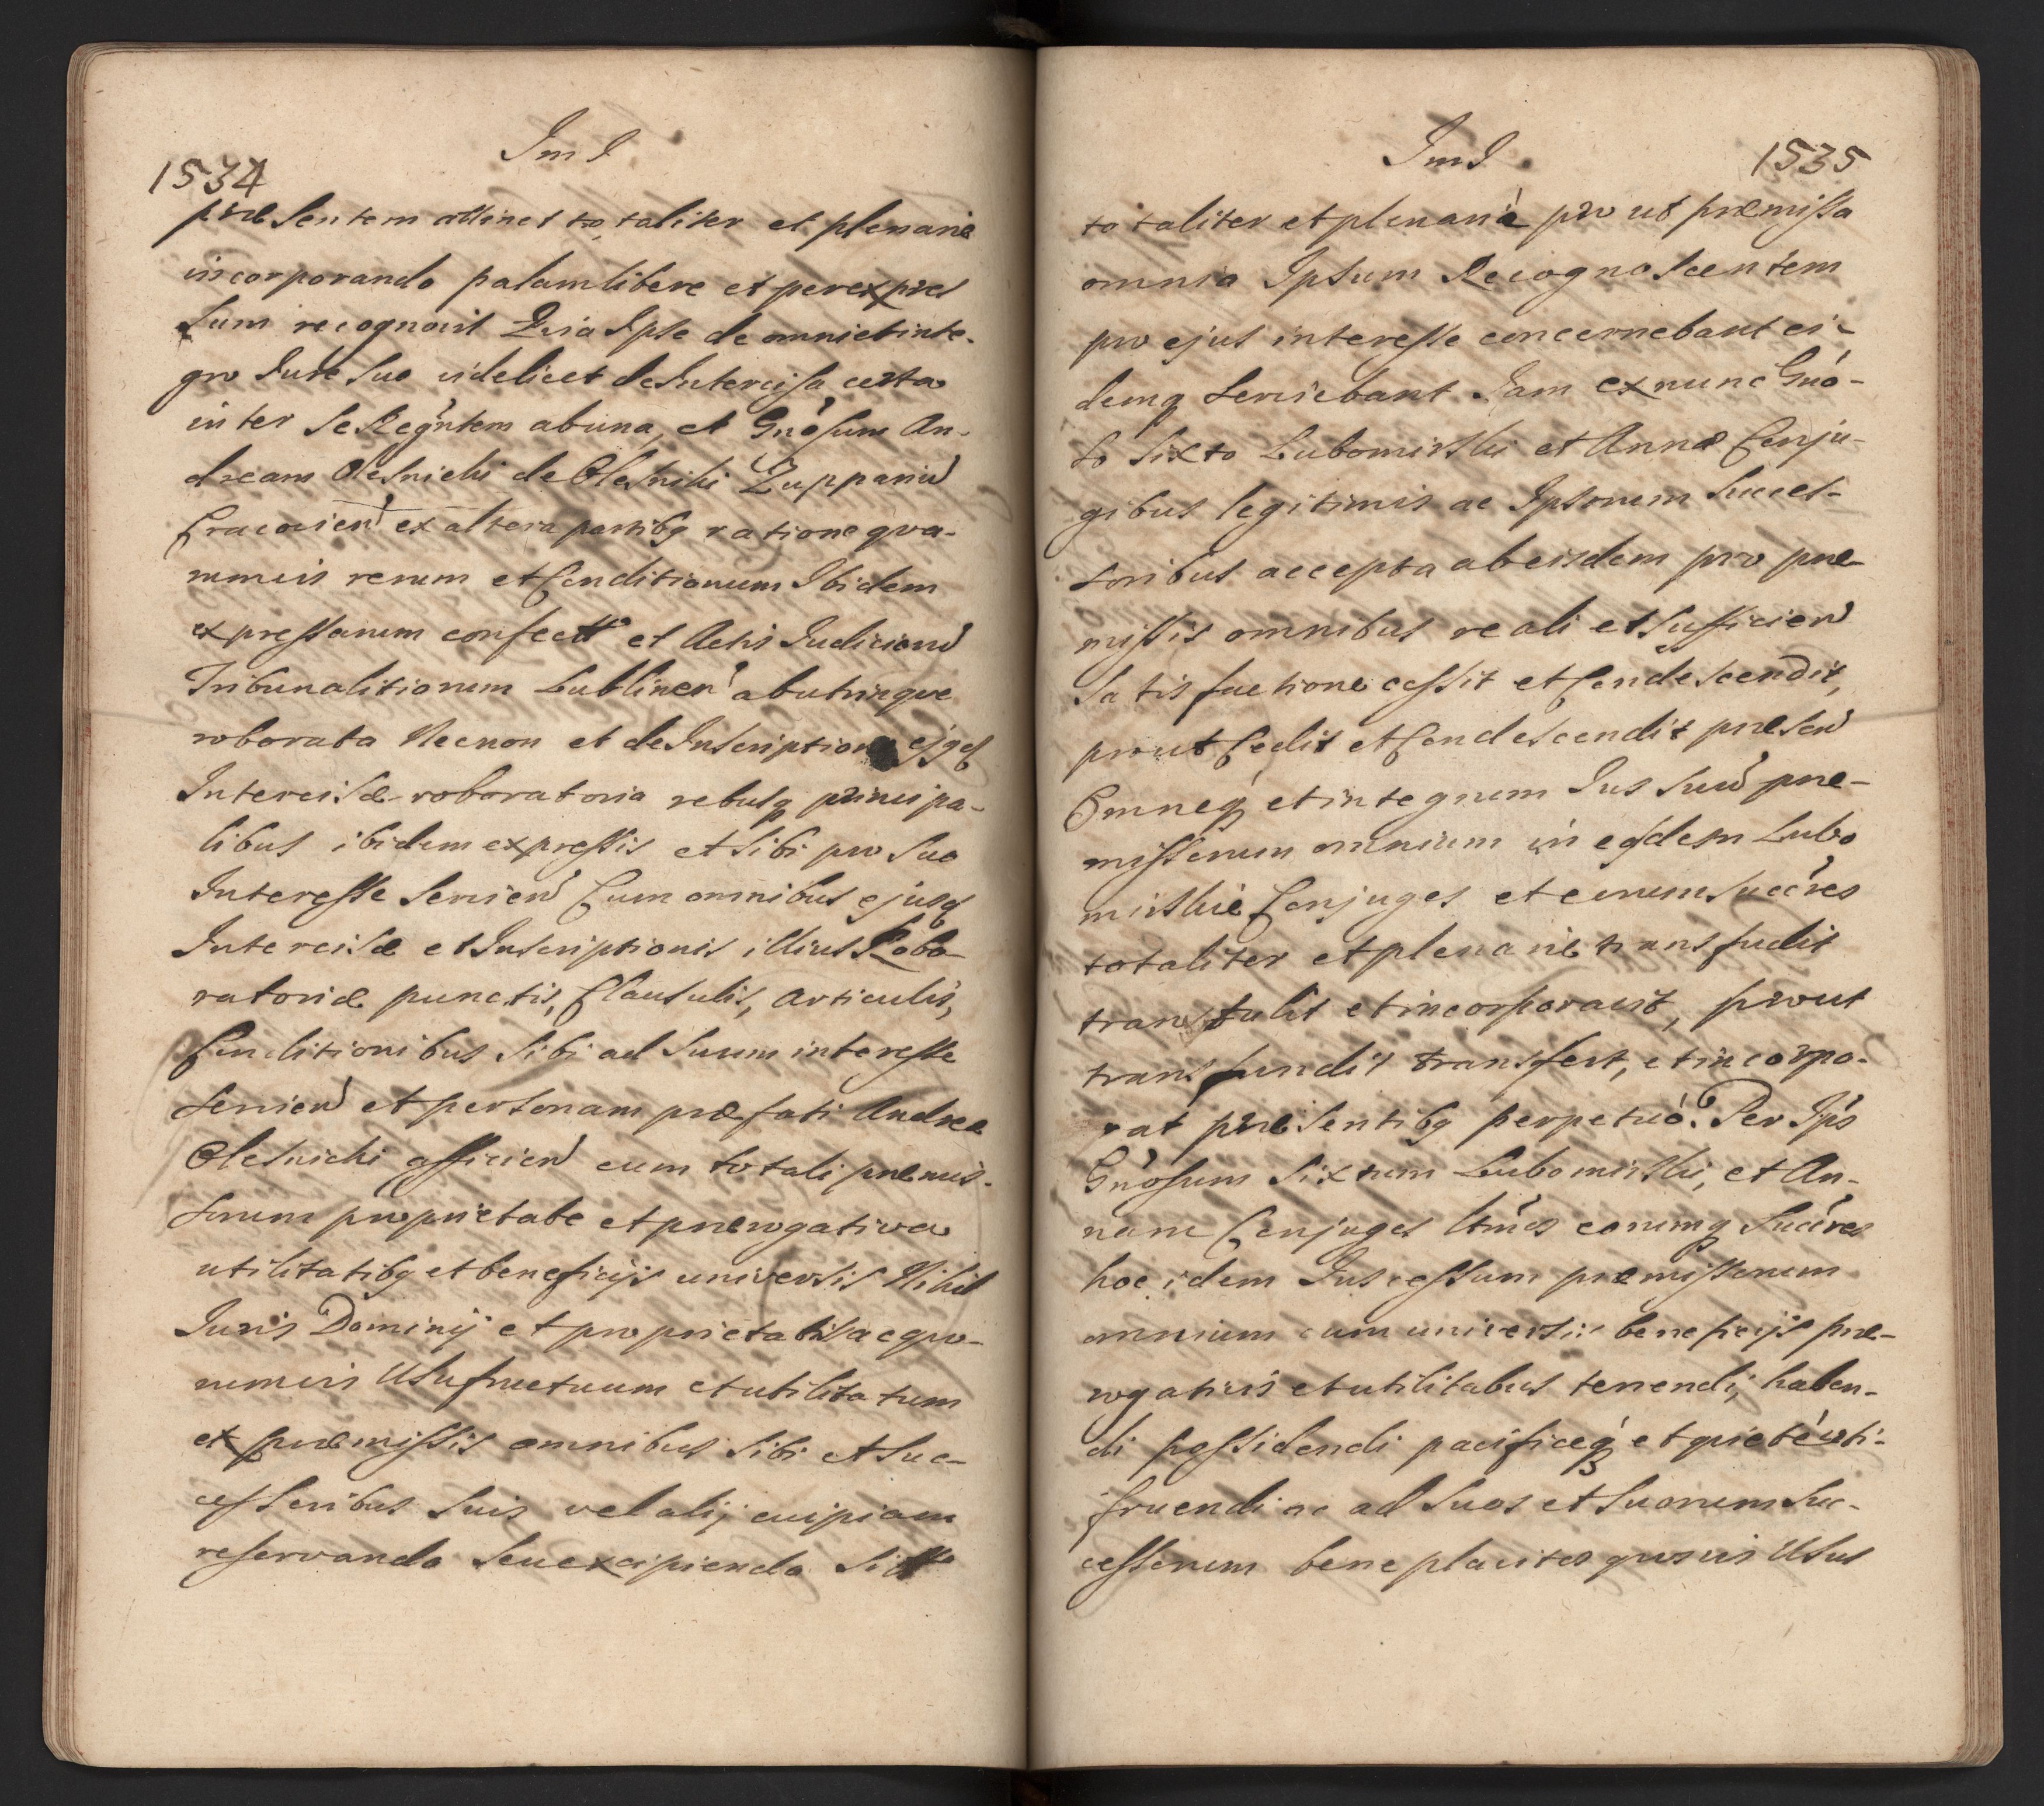 1534
Im I
præsentem attinet totaliter et plenarie
incorporando palam libere et per expres
sum recognovit Quia Ipse de omni et inte-
gro Jure suo videlicet de Intercisa certa
inter se Regntem ab una, et Gnosum An-
dream Olesnicki de Olesniki Zuppariu
Cracovien ex altera partibq ratione qva-
rumvis rerum et Conditionum Ibidem
expressarum confect et Actis Judiciorum
Tribunalitiorum Lublinen ab utrinque
roborata Necnon et de Inscriptione ejqd
Intercisæ roboratoria rebusq principa-
libus ibidem expressis et sibi pro suo
Interesse servien Cum omnibus ejusd
Intercisæ et Inscriptionis illius Robo-
ratoriæ punctis, Clausulis, Articulis,
Conditionibus sibi ad suum interesse
servien et personam præfati Andreæ
Olesnicki afficien cum totali præmis-
sorum proprietate et prærogativa
utilitatibq et beneficijs universis Nihil
Juris Dominij et proprietatis ac quo-
rumvis Usufructuum et utilitatum
ex præmissis omnibus sibi et suc-
cessoribus suis vel alij cuipiam
reservando seu excipiendo sitto
Im I
1535
totaliter et plenarie pro ut præmissa
omnia Ipsum Recognoscentem
pro ejus interesse concernebant ei-
demq serviebant Jam ex nunc Gno-
so Sixto Lubomirski et Annæ Conju-
gibus legitimis ac Ipsorum succes-
soribus accepta ab eisdem pro præ-
missis omnibus reali et sufficien
satisfactione cessit et Condescendit,
prout Cedit et Condescendit præsen
Omneq et integrum Jus suu præ-
missorum omnium in eosdem Lubo
mirskie Conjuges et eorum succres
totaliter et plenarie transfudit
transtulit et incorporavit, prout
transfundit transfert, et incorpo-
rat præsentibq perpetuo. Per Ips
Gnosum Sixtum Lubomirski, et An-
nam Conjuges ltmos eorumq succres
hoc idem Jus cessum præmissorum
omnium cum universis beneficijs præ-
rogativis et utilitatibus tenendi, haben-
di possidendi pacificeq et quiete uti-
fruendi ac ad suos et suorum suc-
cessorum beneplacitos quosvis Usus